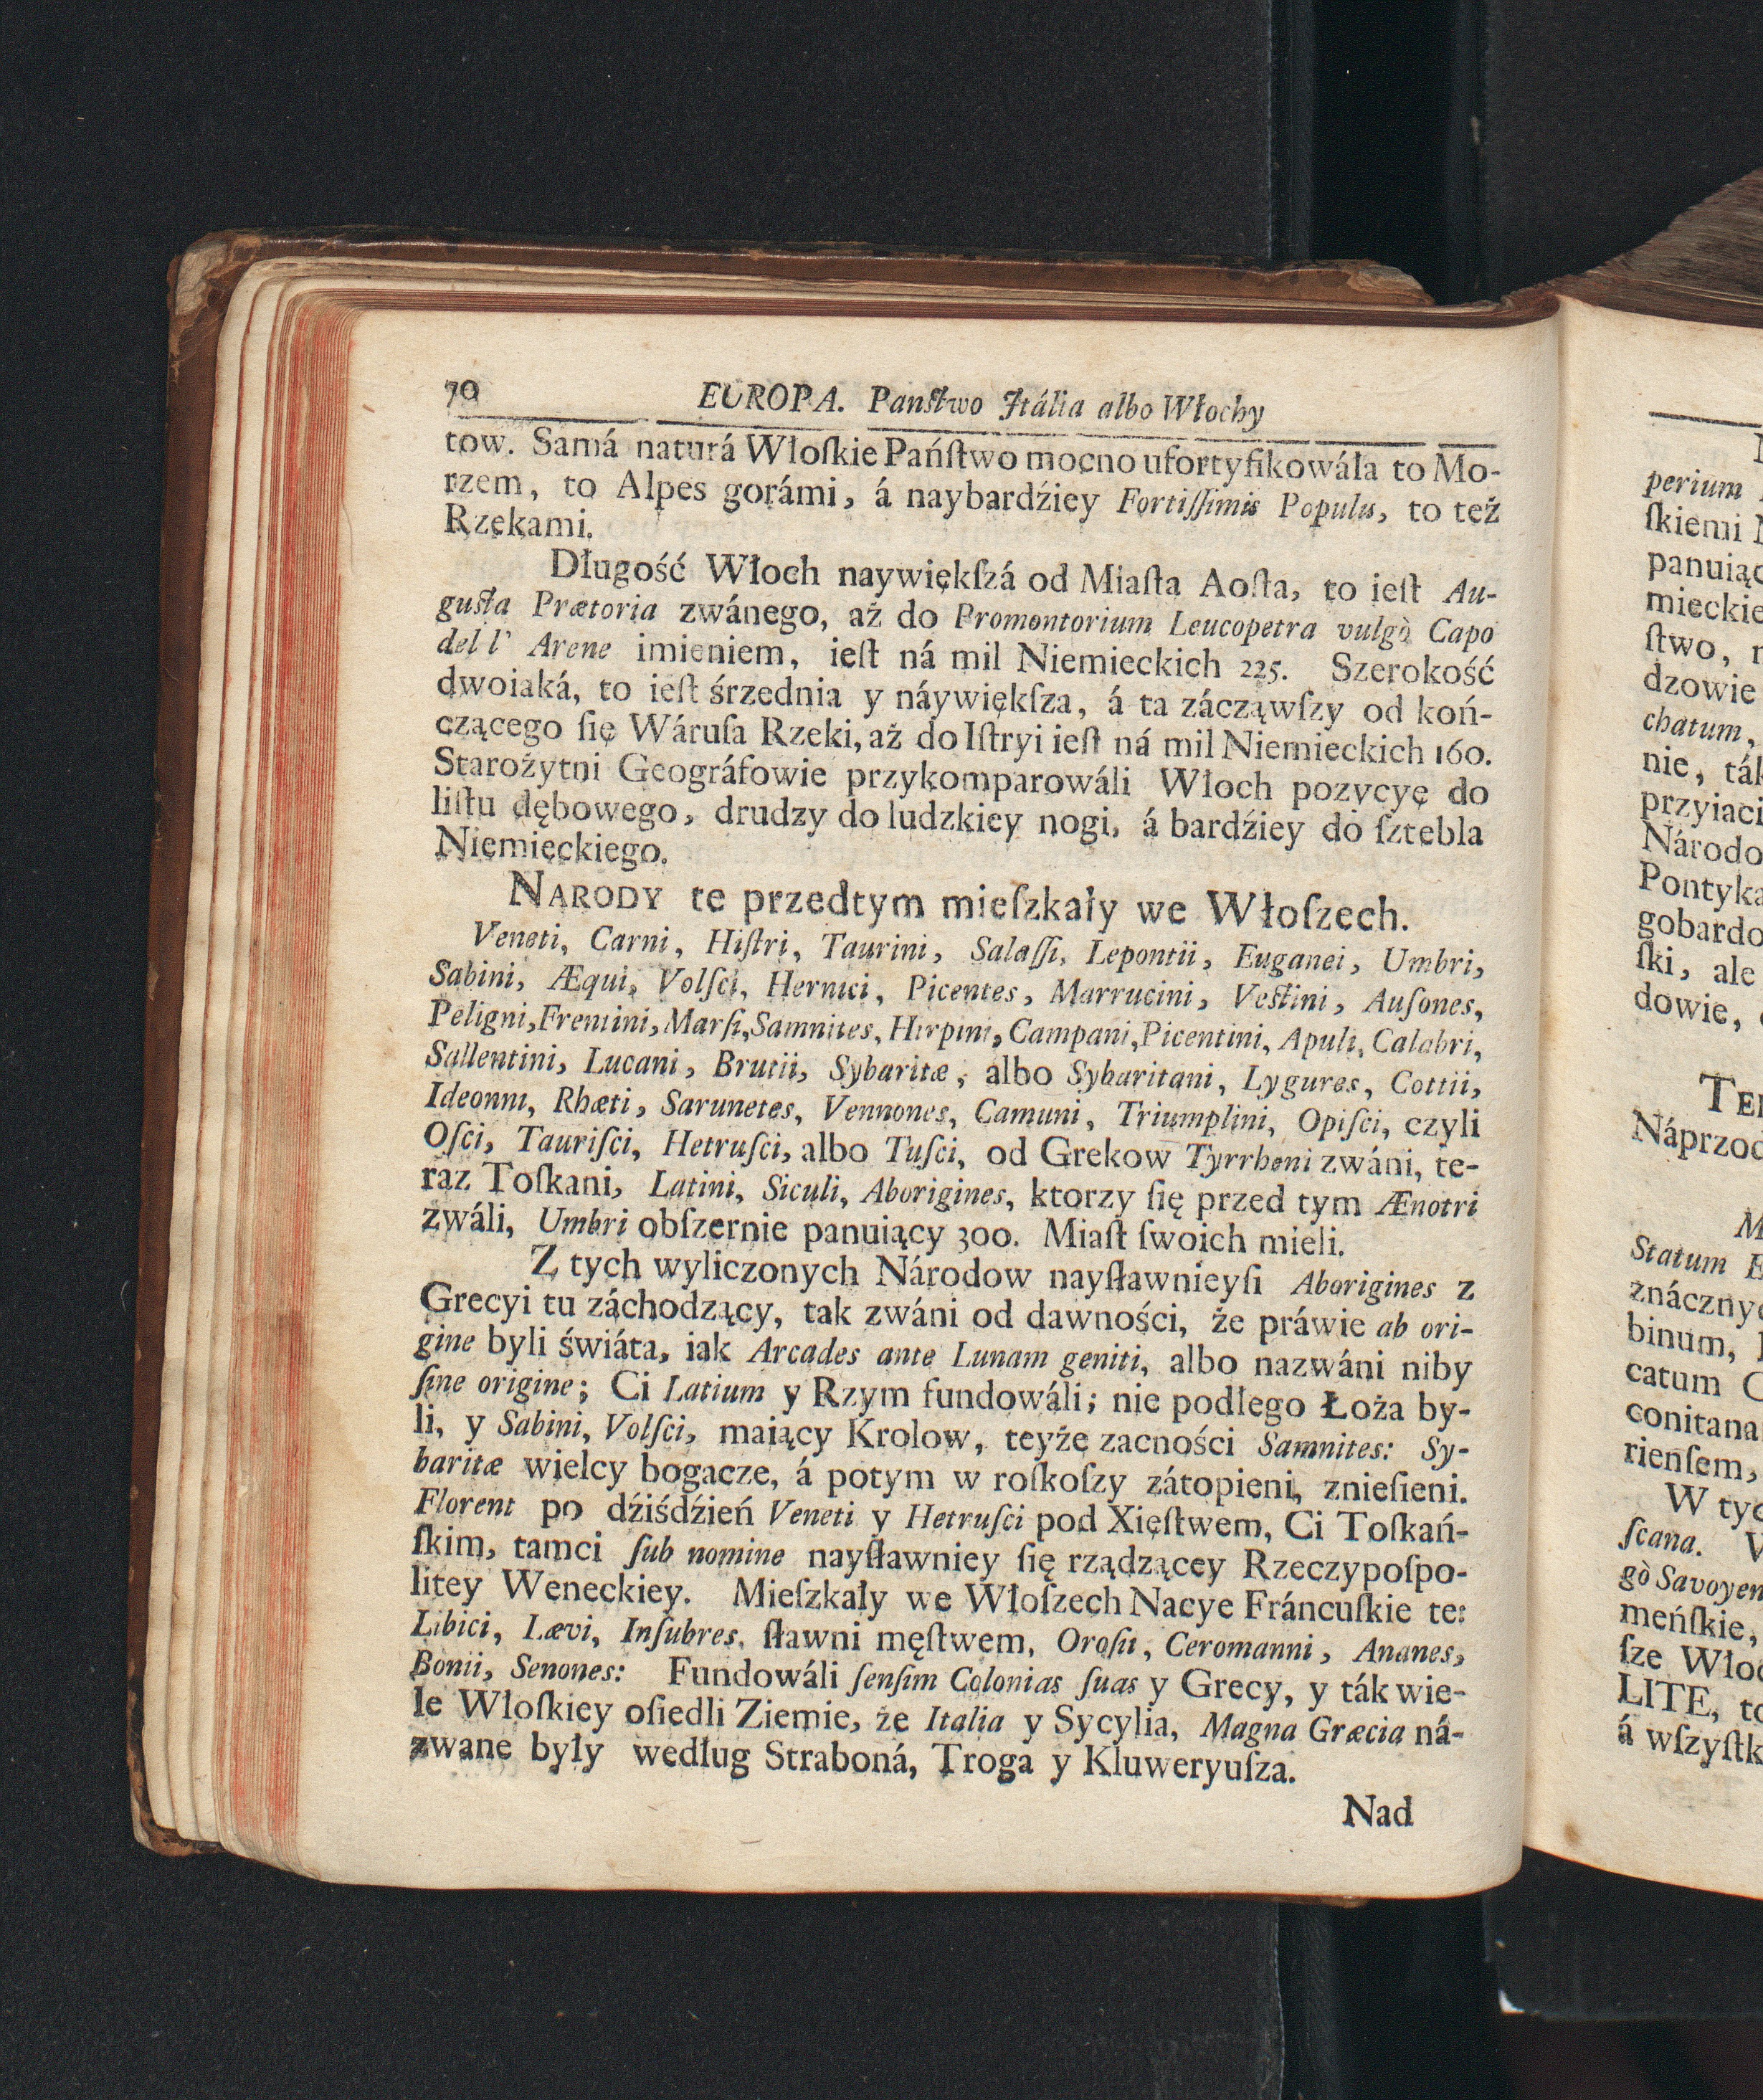 70 EUROPA. Panſtwo Jtália albo Włochy
tow. Samá naturá Włoſkie Pańſtwo mocno ufortyfikowáła to Mo-
rzem, to Alpes gorámi, á naybardźiey Fortiſſimis Populis, to też
Rzekami.
Długość Włoch naywiękſzá od Miaſta Aoſta, to ieſt Au-
guſta Prætoria zwánego, aż do Promontorium Leucopetra vulgò Capo
del l' Arene imieniem, ieſt ná mil Niemieckich 225. Szerokość
dwoiaká, to ieſt śrzednia y náywiękſza, á ta zácząwſzy od koń-
czącego ſię Wáruſa Rzeki, aż do Iſtryi ieſt ná mil Niemieckich 160.
Starożytni Geográfowie przykomparowáli Włoch pozycyę do
liſtu dębowego, drudzy do ludzkiey nogi, á bardźiey do ſztebla
Niemieckiego.
NARODY te przedtym mieſzkały we Włoſzech.
Veneti, Carni, Hiſtri, Taurini, Salaſſi, Lepontii, Euganei, Umbri,
Sabini, Æqui, Volſci, Hernici, Picentes, Marrucini, Veſtini, Auſones,
Peligni, Frentini, Marſi, Samnites, Hirpini, Campani, Picentini, Apuli, Calabri,
Sallentini, Lucani, Brutii, Sybaritæ, albo Sybaritani, Lygures, Cottii,
Ideonni, Rhæti, Sarunetes, Vennones, Camuni, Triumplini, Opiſci, czyli
Oſci, Tauriſci, Hetruſci, albo Tuſci, od Grekow Tyrrheni zwáni, te-
raz Toſkani, Latini, Siculi, Aborigines, ktorzy ſię przed tym Ænotri
zwáli, Umbri obſzernie panuiący 300. Miaſt ſwoich mieli.
Z tych wyliczonych Národow nayſławnieyſi Aborigines z
Grecyi tu záchodzący, tak zwáni od dawności, że práwie ab ori-
gine byli świáta, iak Arcades ante Lunam geniti, albo nazwáni niby
ſine origine; Ci Latium y Rzym fundowáli; nie podłego Łoża by-
li, y Sabini, Volſci, maiący Krolow, teyże zacności Samnites: Sy-
baritæ wielcy bogacze, á potym w roſkoſzy zátopieni, znieſieni.
Florent po dźiśdźień Veneti y Hetruſci pod Xięſtwem, Ci Toſkań-
ſkim, tamci ſub nomine nayſławniey ſię rządzącey Rzeczypoſpo-
litey Weneckiey. Mieſzkały we Włoſzech Nacye Fráncuſkie te:
Libici, Lævi, Inſubres, ſławni męſtwem, Oroſii, Ceromanni, Ananes,
Bonii, Senones: Fundowáli ſenſim Colonias ſuas y Grecy, y ták wie-
le Włoſkiey oſiedli Ziemie, że Italia y Sycylia, Magna Græcia ná-
zwane były według Straboná, Troga y Kluweryuſza.
Nad
perium
ſkiemi
panuiąc
mieckie
ſtwo,
dzowie
chatum,
nie, ták
przyiaci
Národo
Pontyka
gobardo
ſki, ale
dowie,
Náprzod
Statum
znácznyc
binum,
catum
conitana
rienſem,
W tyc
ſcana.
gò Savoyen
meńſkie,
ſze Włoc
LITE, to
á wſzyſtk